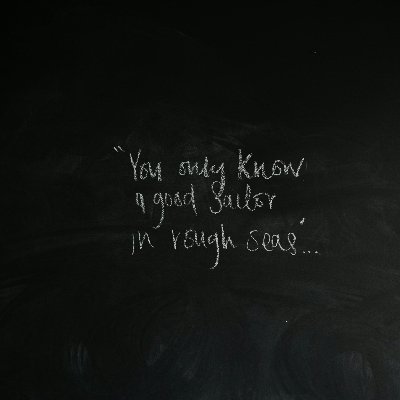 “You only know
a good sailor
in rough seas’...